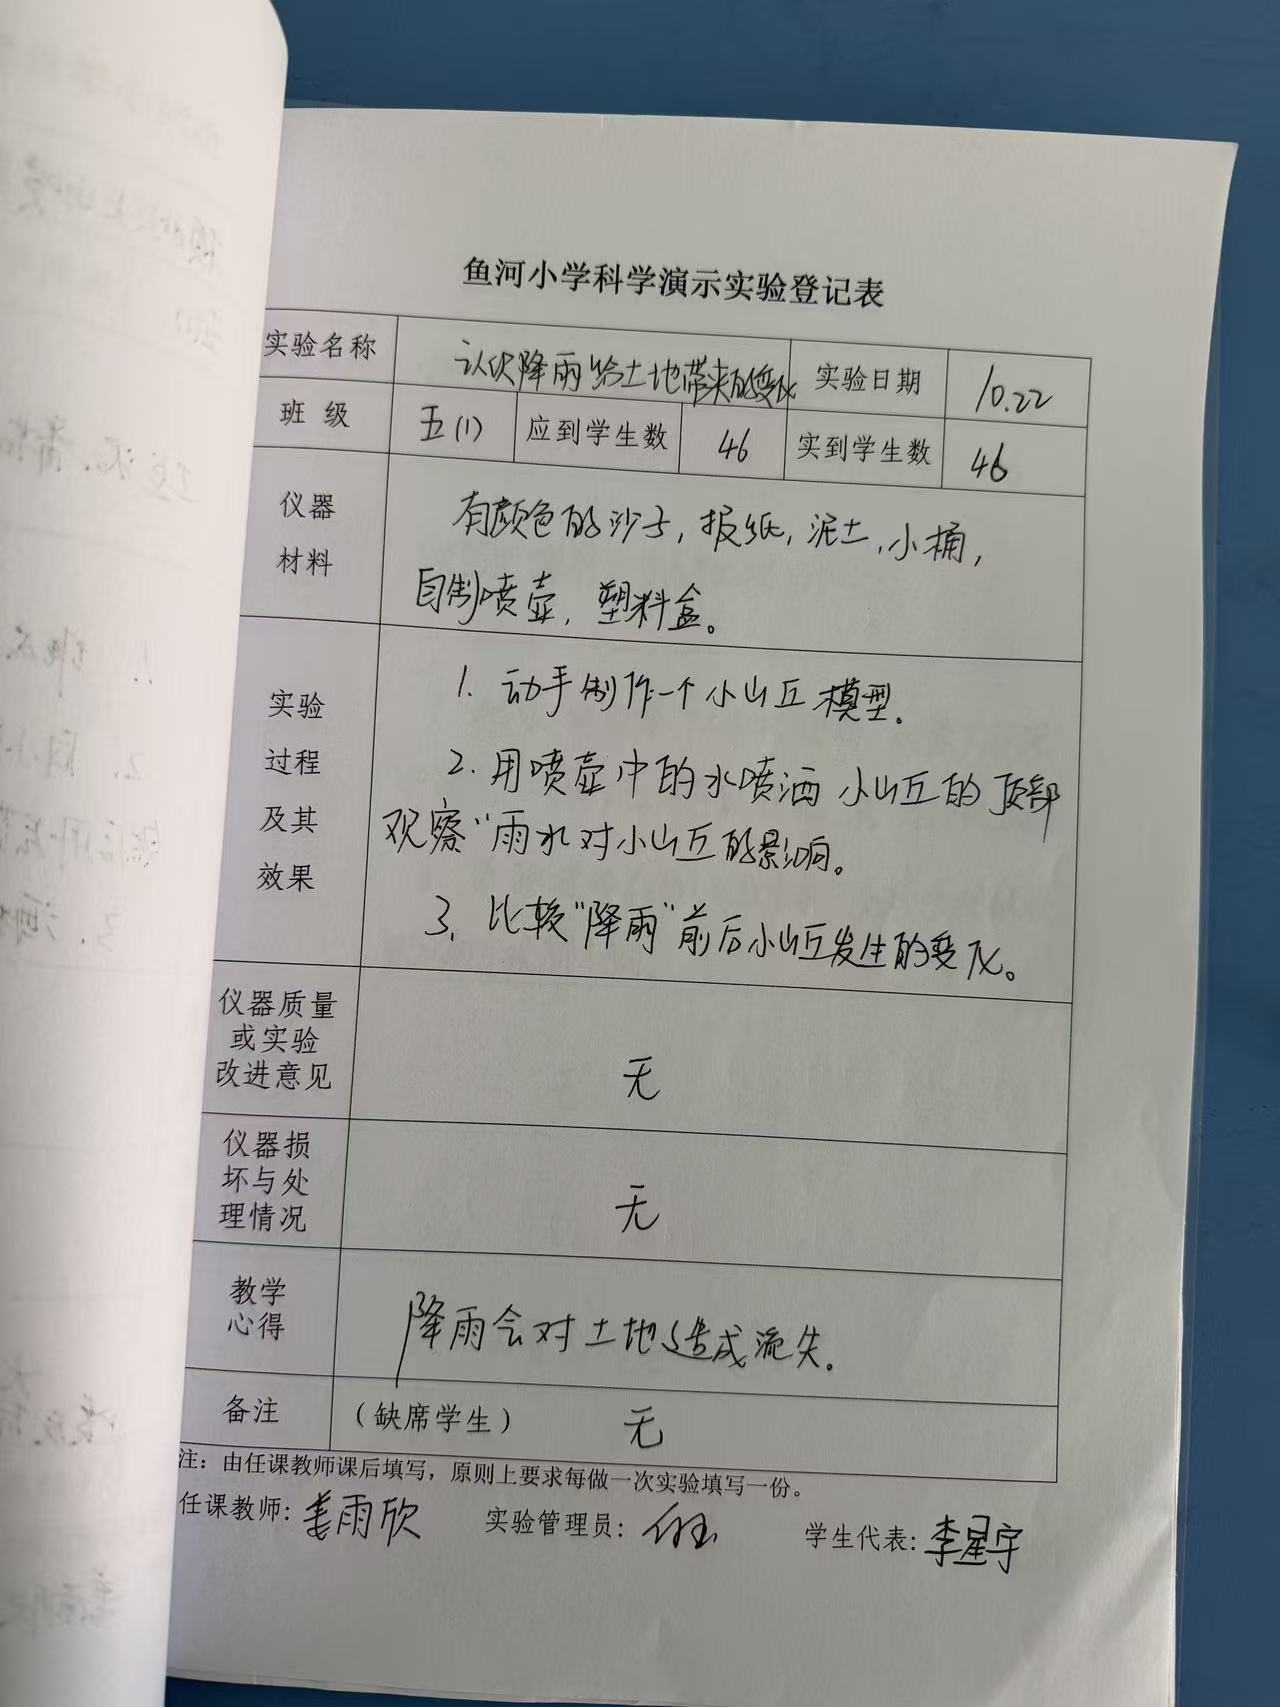 鱼河小学科学演示实验登记表
实验名称 认识降雨给土地带来的变化 实验日期 10.22
班 级 五(1) 应到学生数 46 实到学生数 46
仪器
材料
有颜色的沙子，报纸，泥土，小桶，
自制喷壶，塑料盒。
实验
过程
及其
效果
1. 动手制作一个小山丘模型.
2. 用喷壶中的水喷洒小山丘的顶部
观察“雨水对小山丘的影响。
3. 比较“降雨”前后小山丘发生的变化。
仪器质量
或实验
改进意见
无
仪器损
坏与处
理情况
无
教学
心得
降雨会对土地造成流失.
备注 （缺席学生） 无
注：由任课教师课后填写，原则上要求每做一次实验填写一份。
任课教师: 姜雨欣 实验管理员: 学生代表: 李星宇